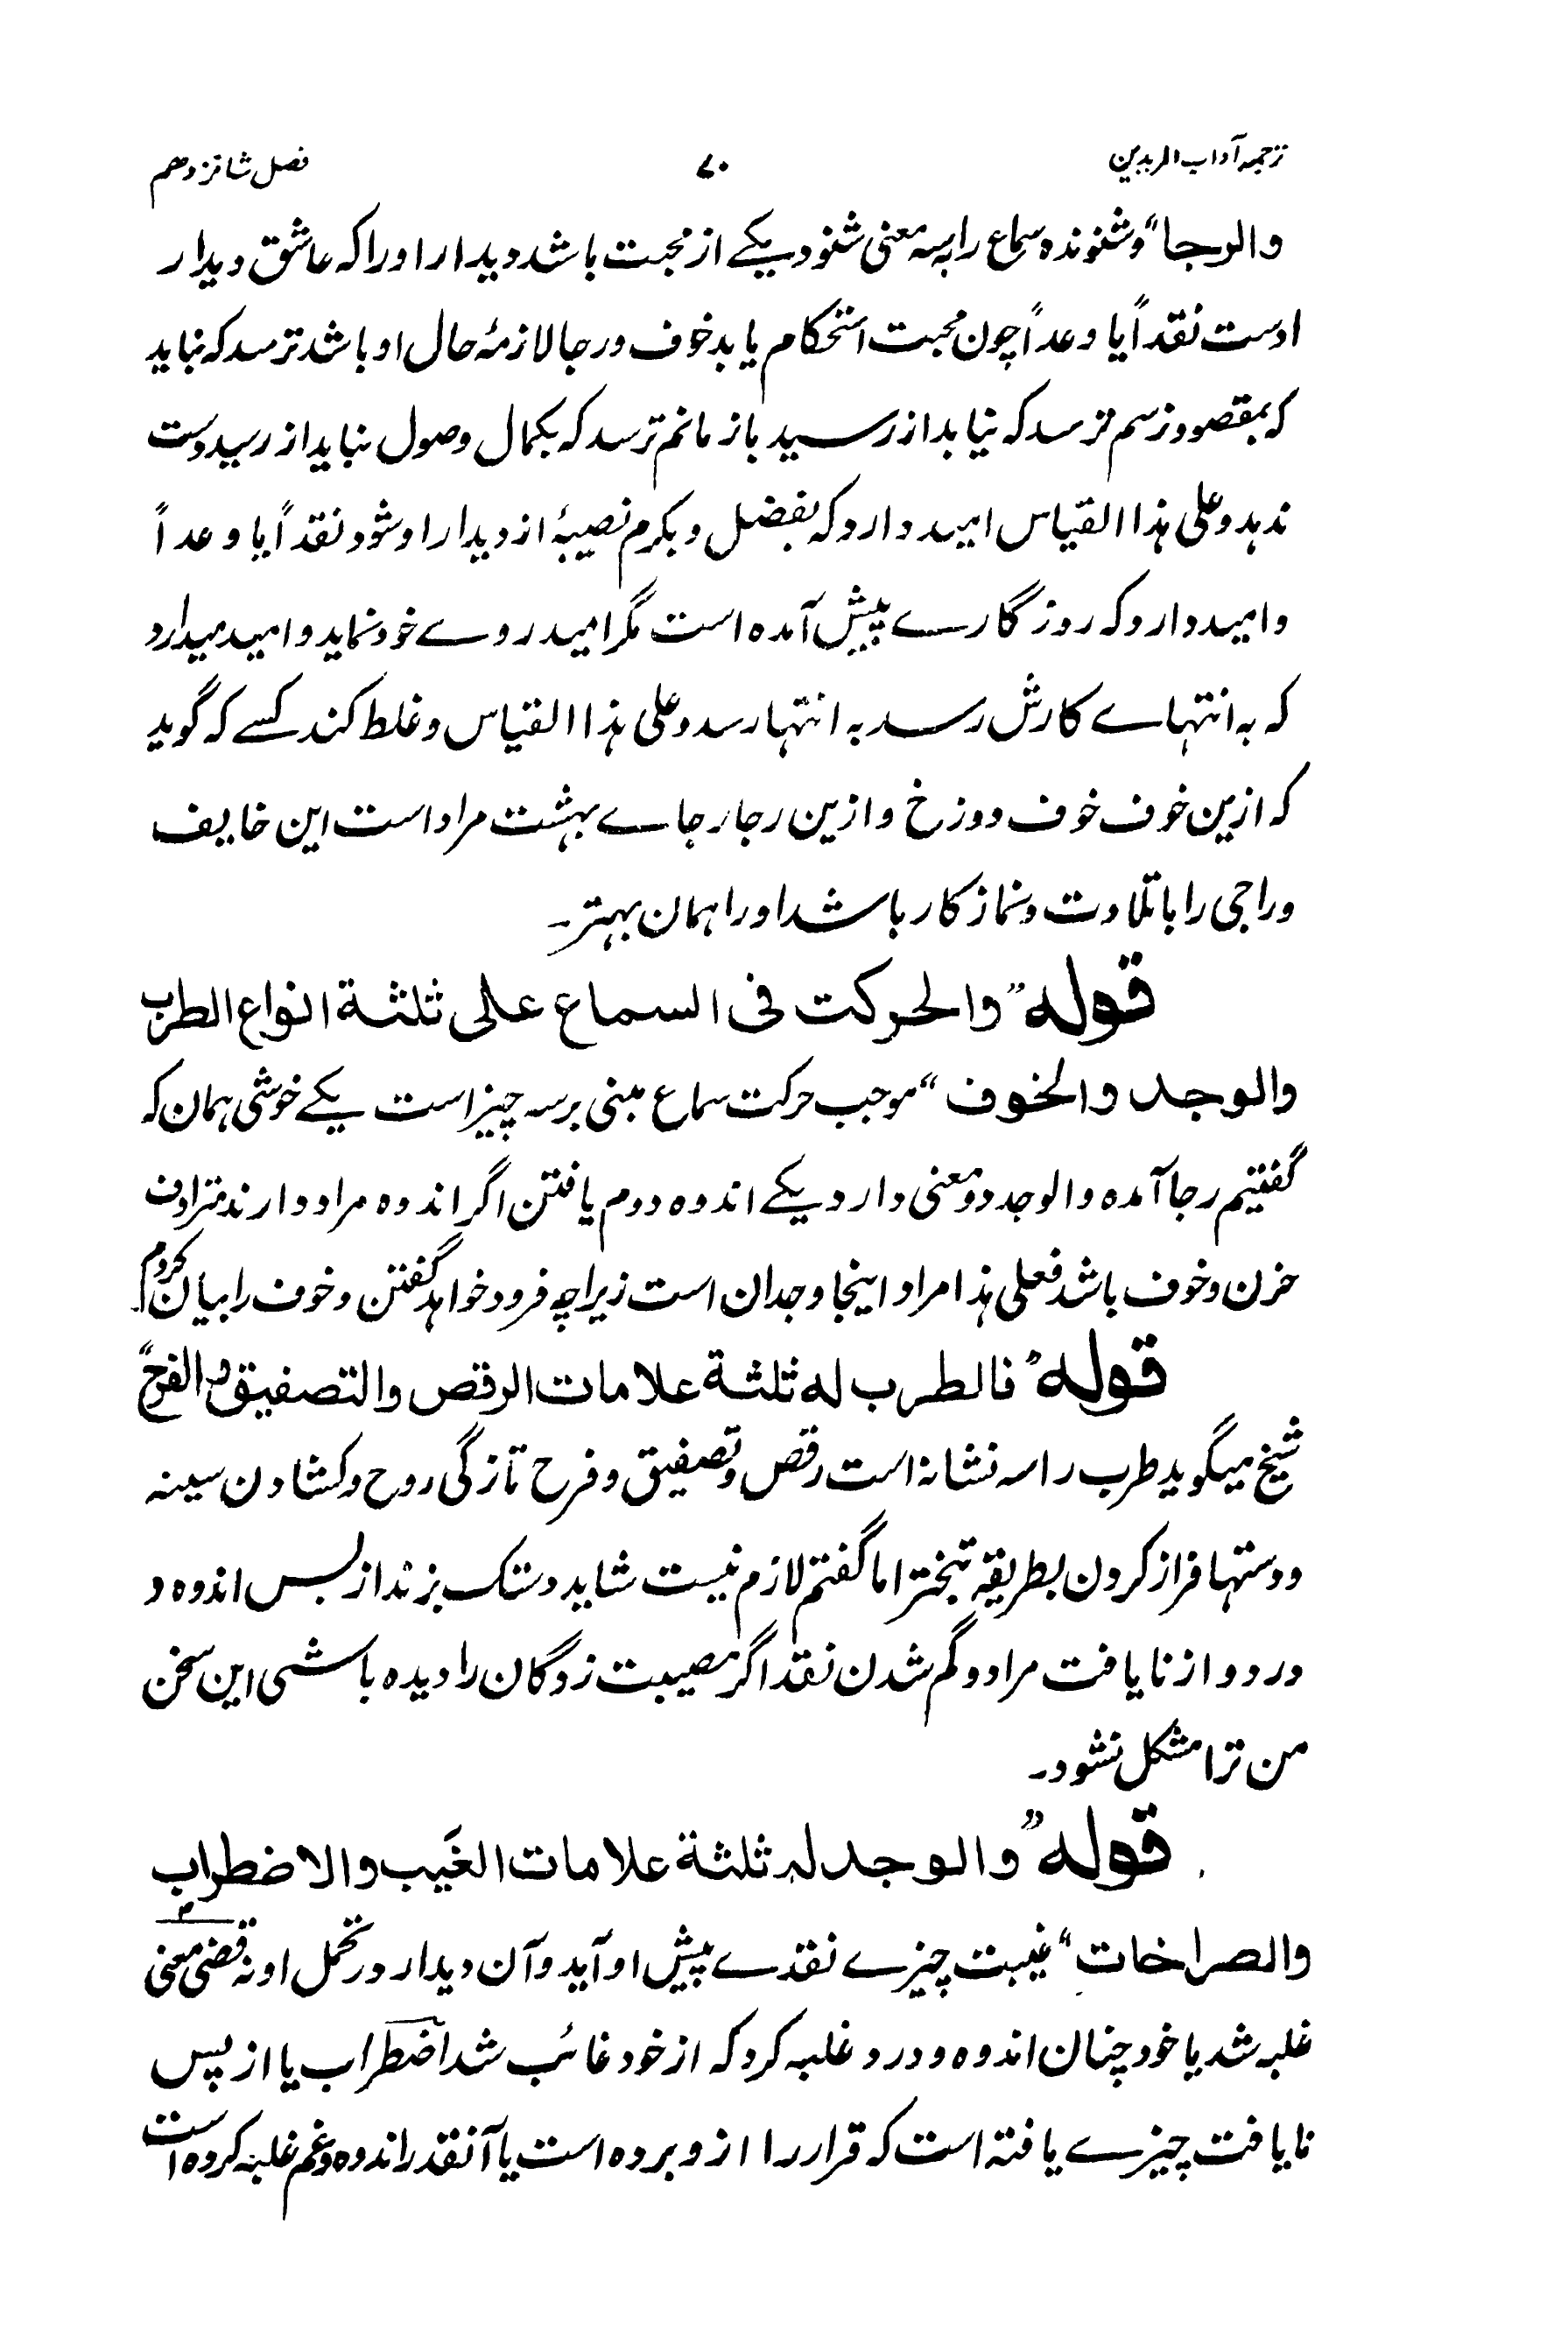 ترجمہ آداب المریدین ۷۰ فصل شانزدهم
والرجا“ وشنونده سماع را بسه معنی شنود یکے از محبت باشد دیدار او را که عاشق دیدار
اوست نقداً یا وعداً چون محبت استحکام یابد خوف ورجا لازمۂ حال او باشد ترسد که نباید
که بمقصود نرسم ترسد که نیابد از رسید باز مانم ترسد که بکمال وصول نباید از رسید دست
ندهد وعلی هذا القیاس امید دارد که بفضل وبکرم نصیبۂ از دیدار او شود نقداً یا وعداً
وامید دارد که روزگارے پیش آمده است مگر امید روے خود نماید وامید میدارد
که به انتهاے کارش رسد به انتها رسد وعلی هذا القیاس وغلط کند کسے که گوید
که ازین خوف خوف دوزخ وازین رجا رجاے بهشت مراد است این خایف
وراجی را با تلاوت ونماز کار باشد او را همان بهتر۔
قوله ”والحرکت فی السماع علی ثلثة انواع الطرب
والوجد والخوف“ موجب حرکت سماع مبنی بر سه چیز است یکے خوشی همان که
گفتیم رجا آمده والوجد دو معنی دارد یکے اندوه دوم یافتن اگر اندوه مراد دارند مترادف
حزن وخوف باشد فعلی هذا مراد اینجا وجدان است زیراچه فرود خواهد گفتن وخوف را بیان کردم
قوله ”فالطرب له ثلثة علامات الرقص والتصفیق والفرح“
شیخ میگوید طرب را سه نشانه است رقص وتصفیق وفرح تازگی روح وکشادن سینه
ودستها فراز کردن بطریقه تبختر اما گفتم لازم نیست شاید دستک بزند از بس اندوه و
درد واز نایافت مراد وگم شدن نقد اگر مصیبت زدگان را دیده باشی این سخن
من ترا مشکل نشود۔
قوله ”والوجد له ثلثة علامات الغَیب والاضطراب
والصراخات“ غیبت چیزے نقدے پیش او آید وآن دیدار در تحمل او نه قضی معنی
غلبه شد یا خود چنان اندوه ودرد غلبه کرد که از خود غائب شد اضطراب یا از پس
نایافت چیزے یافته است که قرار را ازو برده است یا آنقدر اندوه وغم غلبه کرده است